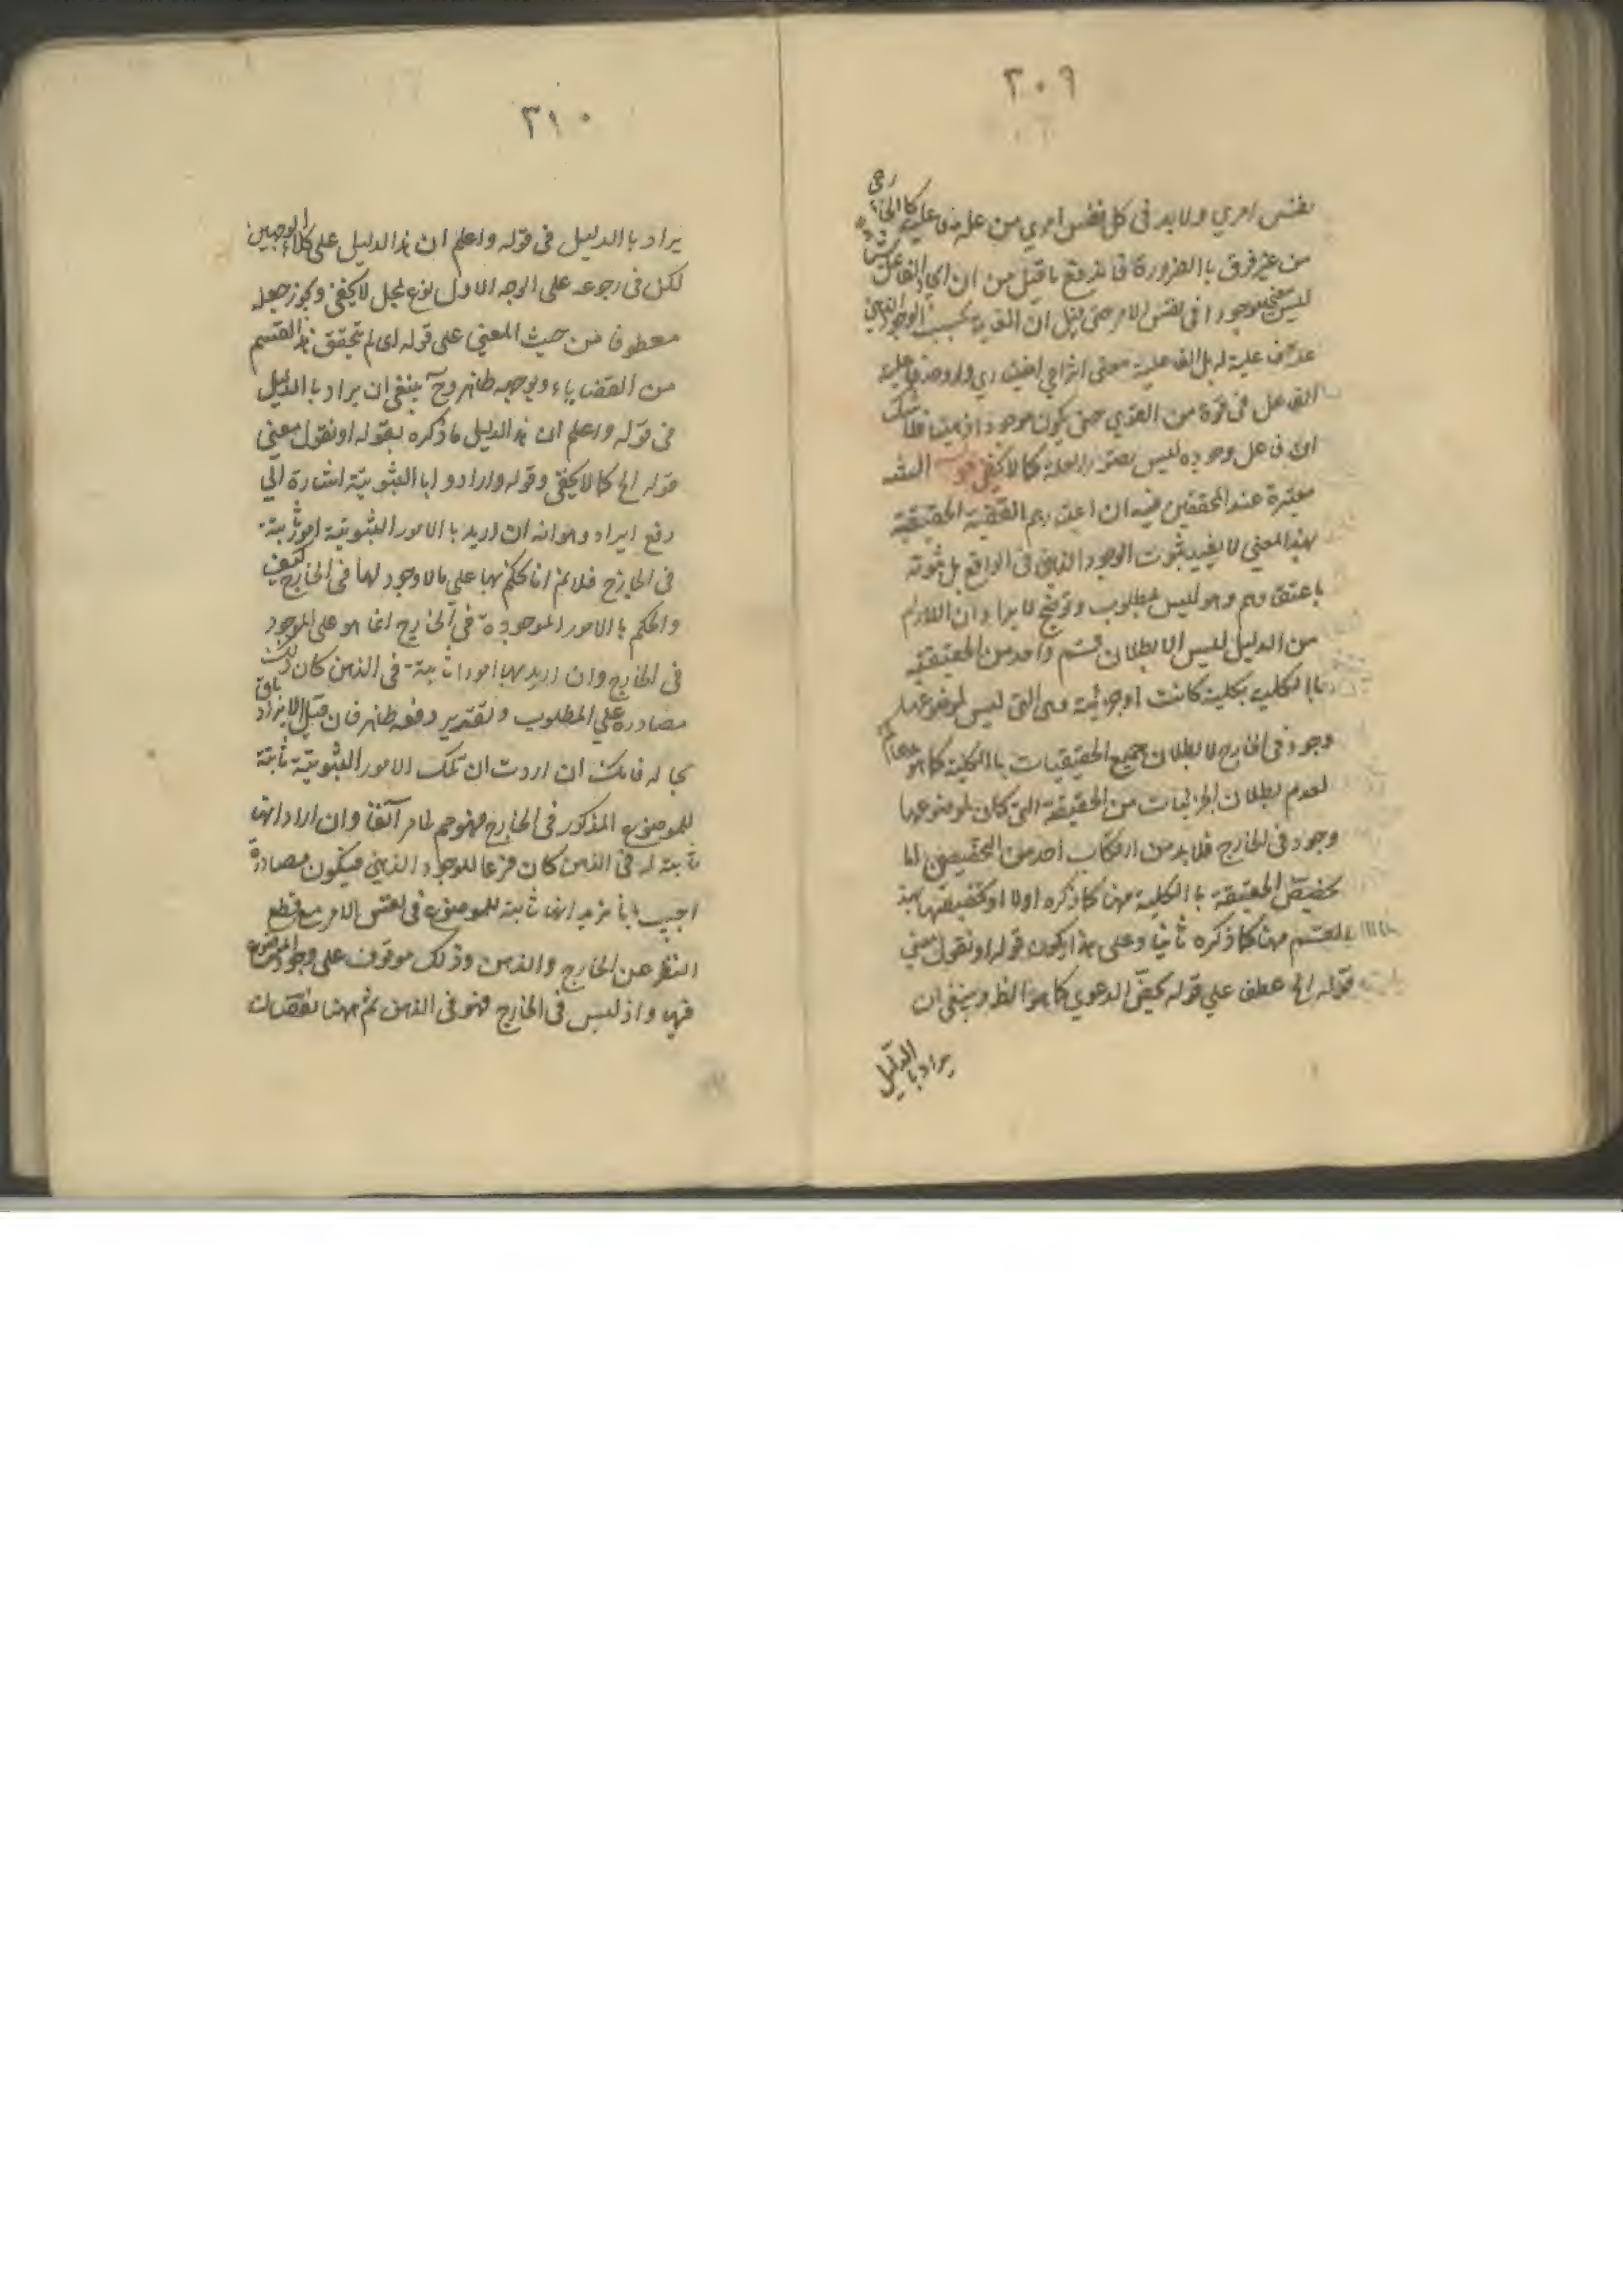 ٣٠٩
نفس امري ولا بد في كل نفس امري من علة فاعلية كما في الخارجي
من غير فرق با الضرورة فاندفع ما قيل من ان ايجاد الفاعل
ليس بموجودا في نفس الامر حتى يقال ان الفاعل بحسب الوجود الذهني
علية له بل الفاعلية معنى انتزاعي
الفاعل في قوة من القوي حتى يكون موجودا فلا شك
ان فاعل وجوده ليس بصور العلة كما لا يخفى قوله
معتبرة عند المحققين فيه ان اعتبارهم القضية الحقيقية
بهذا المعني لا يفيد ثبوت الوجود الذهني في الواقع بل ثبوته
باعتقادهم وهو ليس بمطلوب وتوضيح الايراد ان اللازم
من الدليل ليس الا بطلان قسم واحد من الحقيقية
با الكلية بكلية كانت او جزئية وهي التي ليس لموضوعها
وجود في الخارج لا بطلان جميع الحقيقيات با الكلية كما هو
لعدم بطلان الجزئيات من الحقيقة التي كان لموضوعها
وجود في الخارج فلا بد من ارتكاب احد من التخصيصين اما
تخصيص الحقيقة با الكلية مهنا كما ذكره اولا او تخصيصها بهذ
القسم مهنا كما ذكره ثانيا وعلى هذا يكون قوله او نقول معني
قوله الخ عطف علي قوله يخص الدعوي كما هو الظ وينبغي ان
يراد با الدليل
٣١٠
يراد با الدليل في قوله واعلم ان هذ الدليل على كلاء الوجهين
لكن في رجوعه على الوجه الاول نوع تمحل لا يخفى ويجوز جعله
معطوفا من حيث المعني على قوله اى لم تتحقق هذ القسم
من القضاياء وتوجيه ظاهر وح ينبغي ان يراد با الدليل
في قوله واعلم ان هذ الدليل ما ذكره بقوله او نقول معني
قوله الخ كما لا يخفى وقوله وارادوا با الثبوتية اشارة الي
دفع ايراد وهو انه ان اريد با الامور الثبوتية امور ثابتة
في الخارج فلا نم انا نحكم بها علي ما لا وجود لها في الخارج كيف
والحكم با الامور الموجودة في الخارج انما هو على الموجود
في الخارج وان اريد بها امورا ثابتة في الذهن كان ذلك
مصادرة علي المطلوب وتقدير دفعه ظاهر فان قيل الايراد باق
بحاله فانك ان اردت ان تلك الامور الثبوتية ثابتة
للموضوع المذكور في الخارج فهو مم لما مر آنفا وان اراد انها
ثابتة له في الذهن كان فرعا للوجود الذهني فيكون مصادرة
اجيب بانا نريد انها ثابتة للموضوع في نفس الامر مع قطع
النظر عن الخارج والذهن وذلك موقوف على وجود الموضوع
فيها واذ ليس في الخارج فهو في الذهن ثم مهنا نقضان